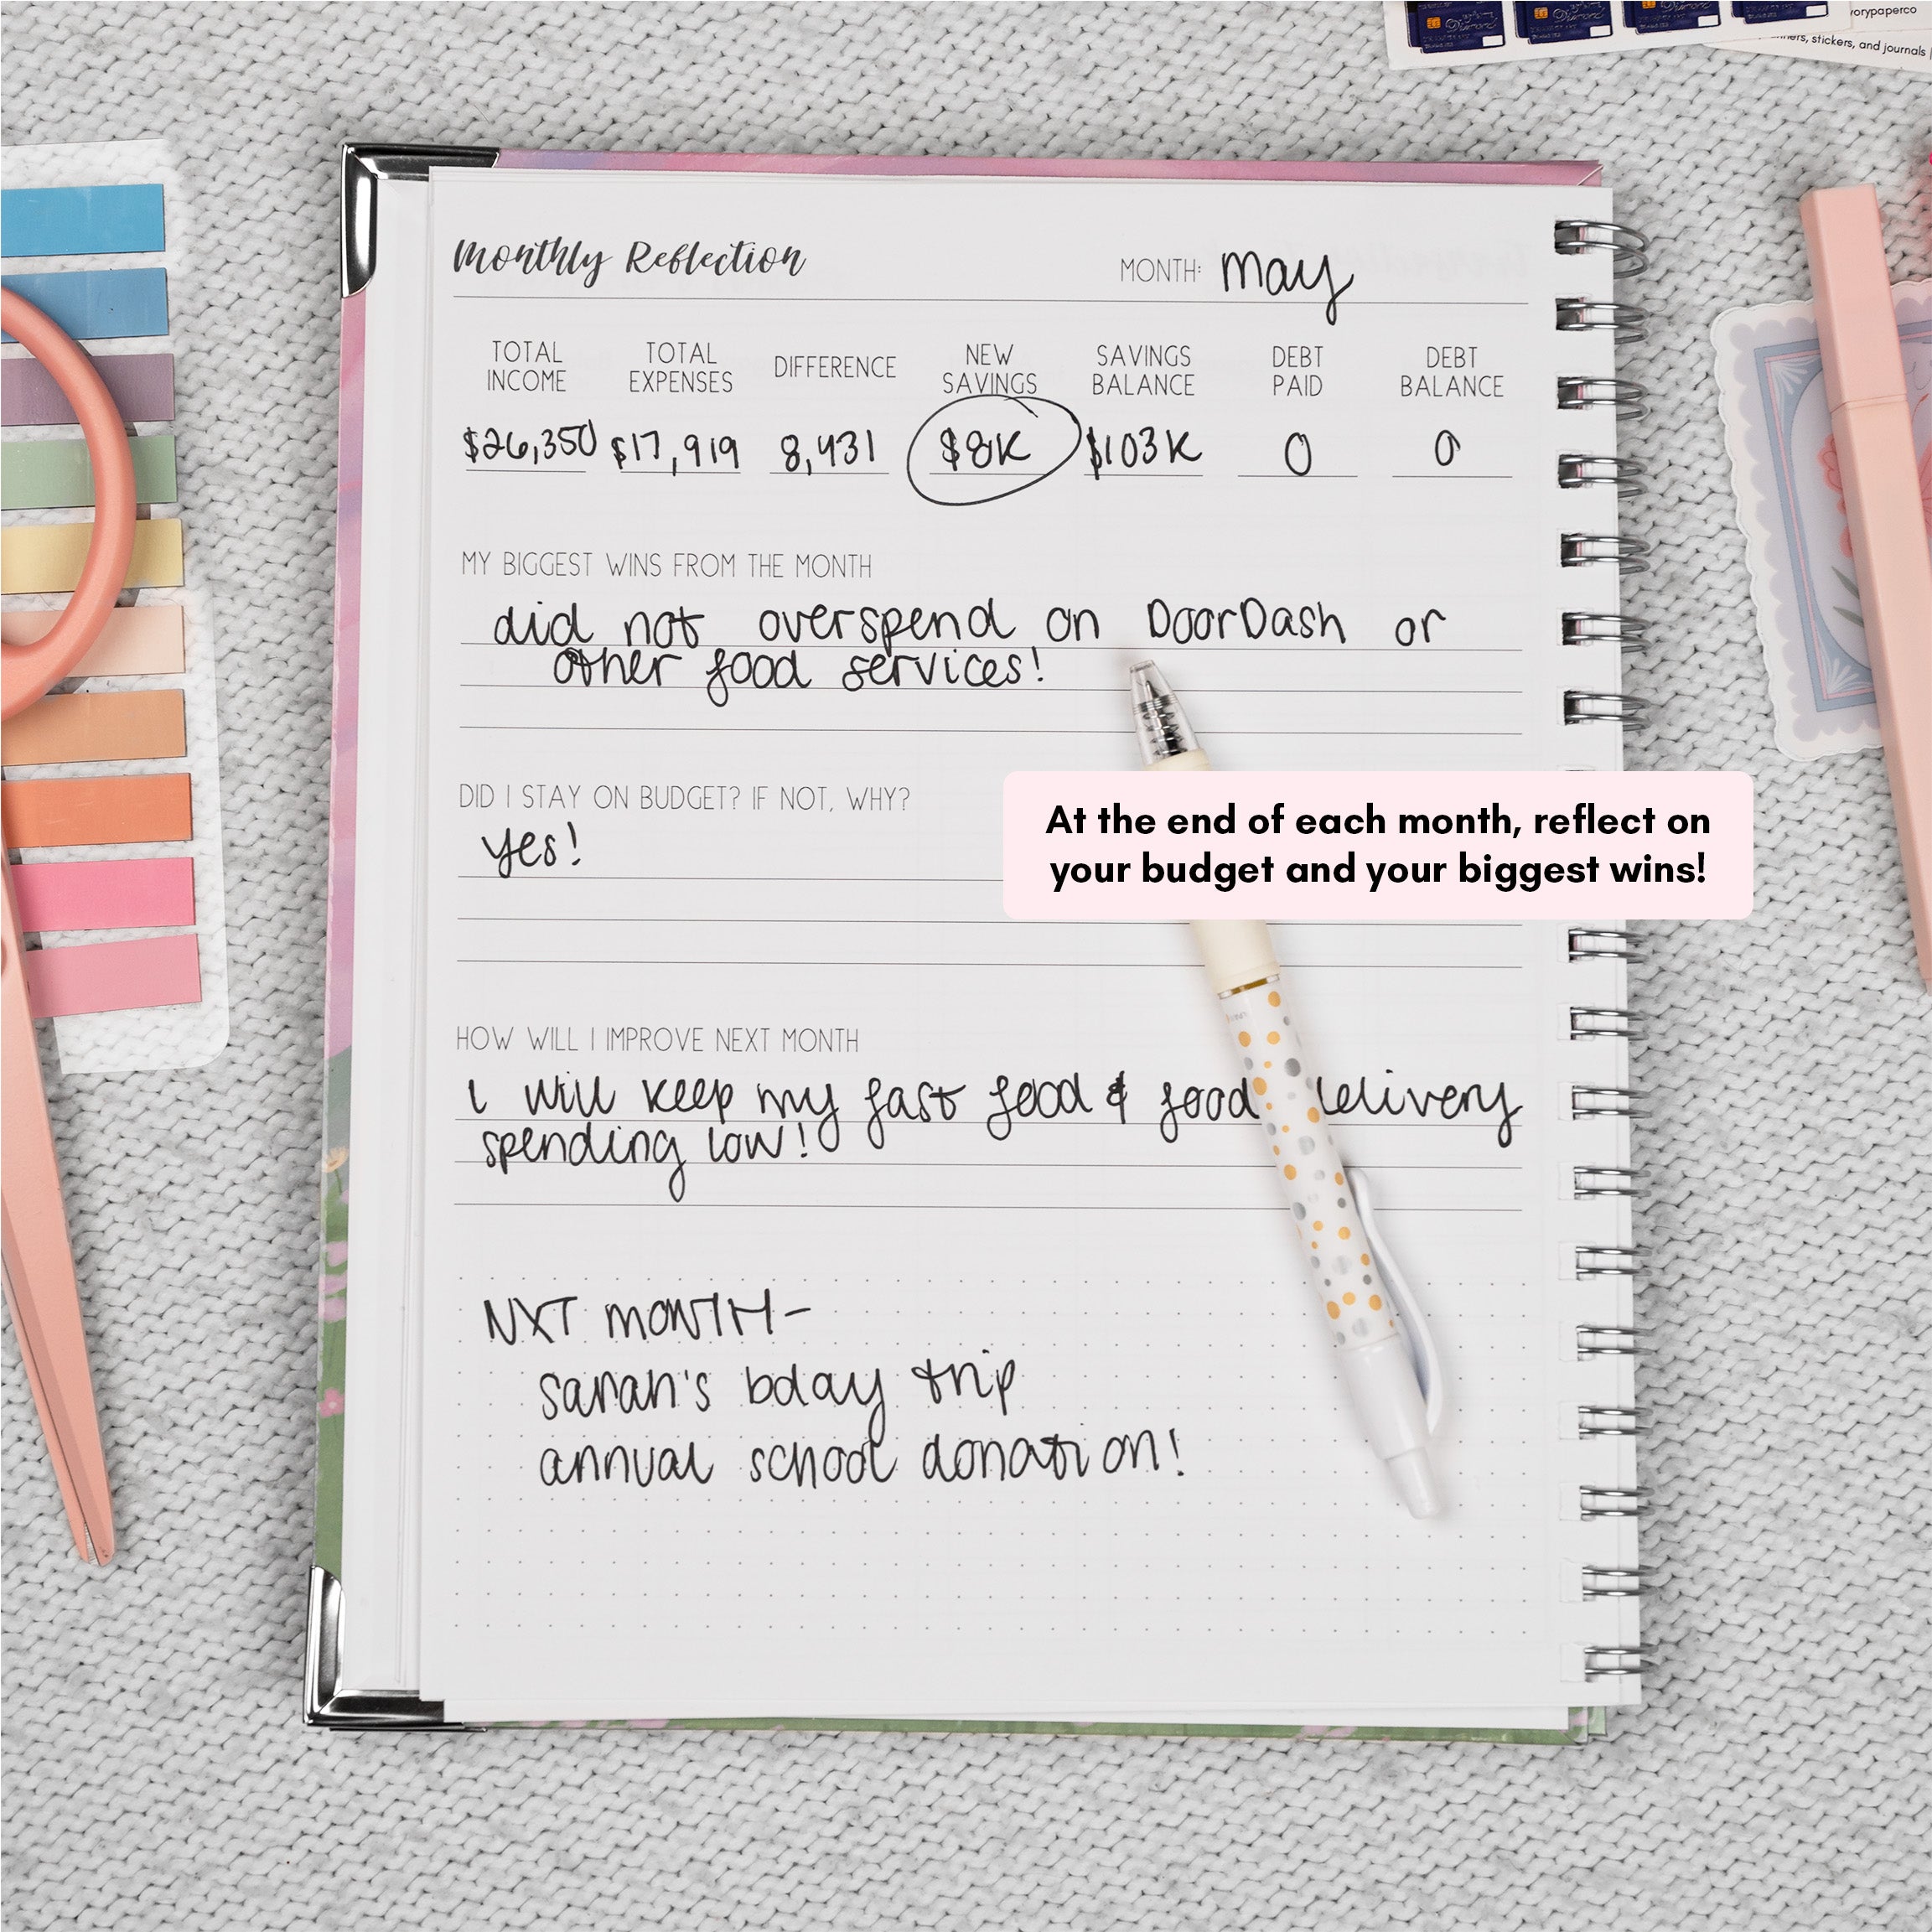 vorypaperco
ners, stickers, and journals
Monthly Reflection
MONTH: may
TOTAL INCOME
TOTAL EXPENSES
DIFFERENCE
NEW SAVINGS
SAVINGS BALANCE
DEBT PAID
DEBT BALANCE
$26,350 $17,919 8,431 $8K $103K 0 0
MY BIGGEST WINS FROM THE MONTH
did not overspend on DoorDash or
other food services!
DID I STAY ON BUDGET? IF NOT, WHY?
yes!
At the end of each month, reflect on
your budget and your biggest wins!
HOW WILL I IMPROVE NEXT MONTH
I will keep my fast food & food delivery
spending low!
NXT MONTH-
sarah's bday trip
annual school donation!